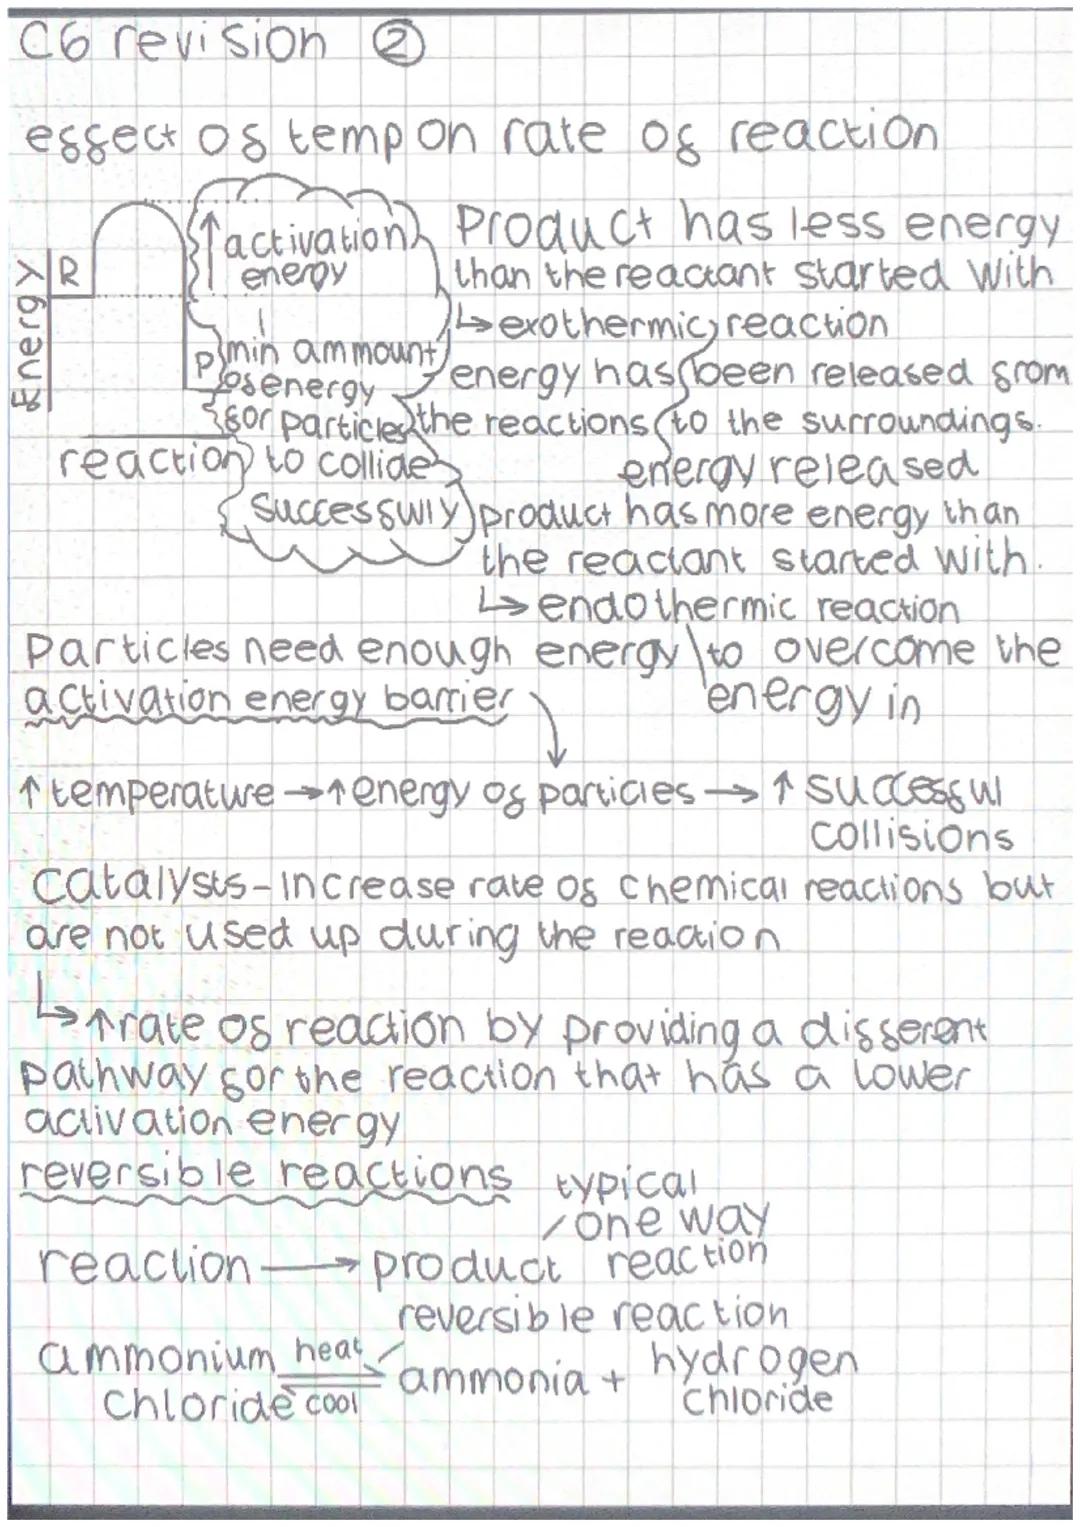 C6 revision ②
effect of temp on rate of reaction
Energy
R
P
reaction
↑ activation
energy
min ammount
of energy
for particles
to collide
successfully
Product has less energy
than the reactant started with
↳ exothermic reaction
energy has been released from
the reactions to the surroundings.
energy released
product has more energy than
the reactant started with.
↳ endothermic reaction
energy in
Particles need enough energy to overcome the
activation energy barrier
↑ temperature → ↑ energy of particles → ↑ successful
collisions
Catalysts - increase rate of chemical reactions but
are not used up during the reaction
↳ ↑ rate of reaction by providing a different
pathway for the reaction that has a lower
activation energy
reversible reactions
typical
one way
reaction
reaction → product
reversible reaction
ammonium heat ⇌ cool ammonia + hydrogen
chloride chloride